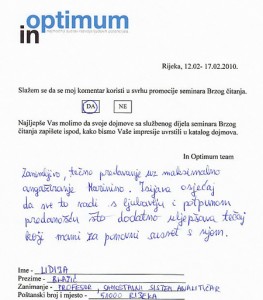 optimum
in
Rijeka, 12.02- 17.02.2010.
Slažem se da se moj komentar koristi u svrhu promocije seminara Brzog čitanja.
DA NE
Najljepše Vas molimo da svoje dojmove sa službenog dijela seminara Brzog
čitanja zapišete ispod, kako bismo Vaše impresije uvrstili u katalog dojmova.
In Optimum team
Zanimljivo, tečno predavanje uz maksimalno
angažiranje Marinino. osjećaj
da sve to radi s ljubavlju i potpunom
predanošću što dodatno uljepšava tečaj
koji mami za ponovni susret s njom.
Ime - LIDIJA
Prezime - BLAŽIĆ
Zanimanje - PROFESOR, SISTEM ANALITIČAR
Poštanski broj i mjesto - 51000 RIJEKA